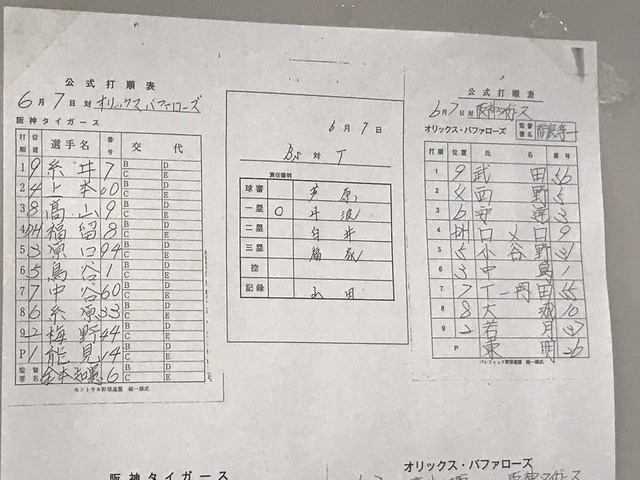 公式打順表
6月7日対オリックスバファローズ
阪神タイガース
打順 位置 選手名 番号 交代
1 9 糸井 7 B D C E
2 4 上本 00 B D C E
3 8 高山 9 B D C E
4 DH 福留 8 B D C E
5 3 原口 94 B D C E
6 5 鳥谷 1 B D C E
7 7 中谷 60 B D C E
8 6 糸原 33 B D C E
9 2 梅野 44 B D C E
P 1 能見 14 B D C E
監督署名 金本知憲 6 C E
セントラル野球連盟 統一様式
6月7日
Bs対T
責任審判
球審 芦原
一塁 〇 丹波
二塁 白井
三塁
控
記録 山田
公式打順表
6月7日対阪神タイガース
オリックス・バファローズ 監督署名
打順 位置 氏名 番号
1 9 武田 56
2 4 西野 5
3 6 安達 3
4 DH ロメロ 9
5 5 小谷野 31
6 3 中島 1
7 7 T-岡田 55
8 8 大城 10
9 2 若月 37
P 東明 26
パシフィック野球連盟 統一様式
阪神タイガース
オリックス・バファローズ